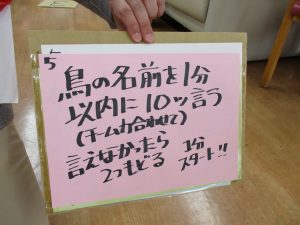 5
鳥の名前を1分
以内に10ッ言う
(チーム力合わせて)
言えなかったら
2つもどる 1分
スタート!!